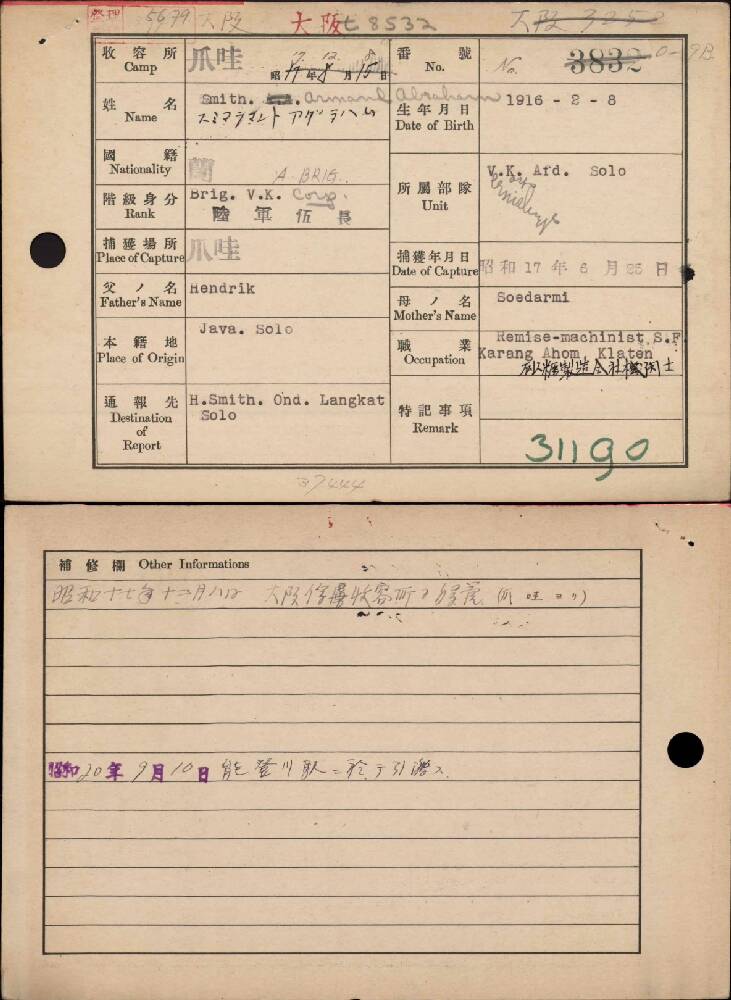 5679 大阪 大阪 8532 大阪 3252
收容所 Camp 爪哇 17. 12. 8 昭 17 年 8 月 15 日
番號 No. No. 3832
姓名 Name Smith. Armand Abraham
スミ アルマント アブラハム
生年月日 Date of Birth 1916 - 2 - 8
國籍 Nationality 蘭 A. BRIG.
階級身分 Rank Brig. V.K. Corp.
陸軍伍長
所屬部隊 Unit V.K. Afd. Solo
捕獲場所 Place of Capture 爪哇
捕獲年月日 Date of Capture 昭和 17 年 6 月 25 日
父ノ名 Father's Name Hendrik
母ノ名 Mother's Name Soedarmi
本籍地 Place of Origin Java. Solo
職業 Occupation Remise-machinist S.F.
Karang Ahom, Klaten
砂糖製造会社機関士
通報先 Destination of Report H.Smith. Ond. Langkat
Solo
特記事項 Remark
31190
37444
補修欄 Other Informations
昭和十七年十二月八日 大阪俘虜收容所ヨ (爪哇ヨリ)
昭和 20 年 9 月 10 日 能登川駅ニ於テ引渡ス